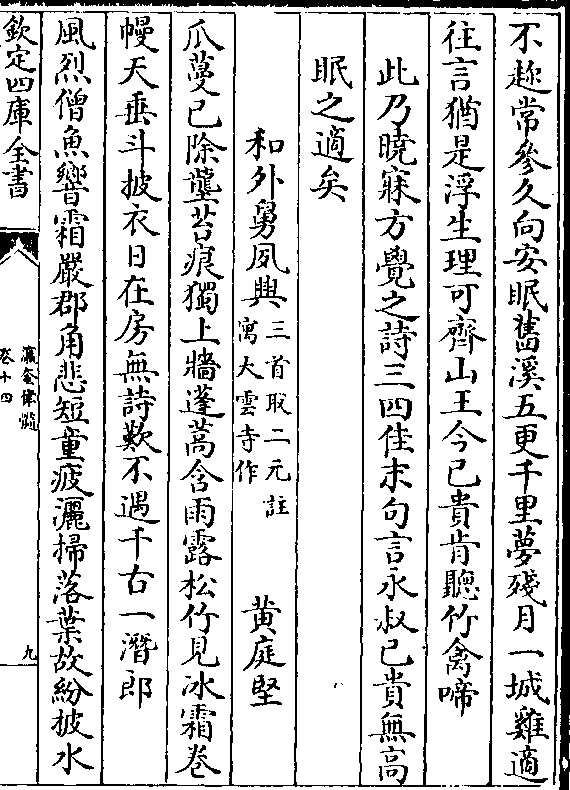 不趂常參久向安眠舊溪五更千里夢殘月一城雞適
往言猶是浮生理可齊山王今已貴肯聽竹禽啼
此乃曉寐方覺之詩三四佳末句言永叔已貴無高
眠之適矣
和外舅夙興三首取二元註寓大雲寺作 黄庭堅
瓜蔓已除壟苔痕獨上牆蓬蒿含雨露松竹見冰霜卷
幔天垂斗披衣日在房無詩歎不遇千古一潛郎
風烈僧魚響霜嚴郡角悲短童疲灑掃落葉故紛披水
欽定四庫全書
瀛奎律髓
卷十四
九